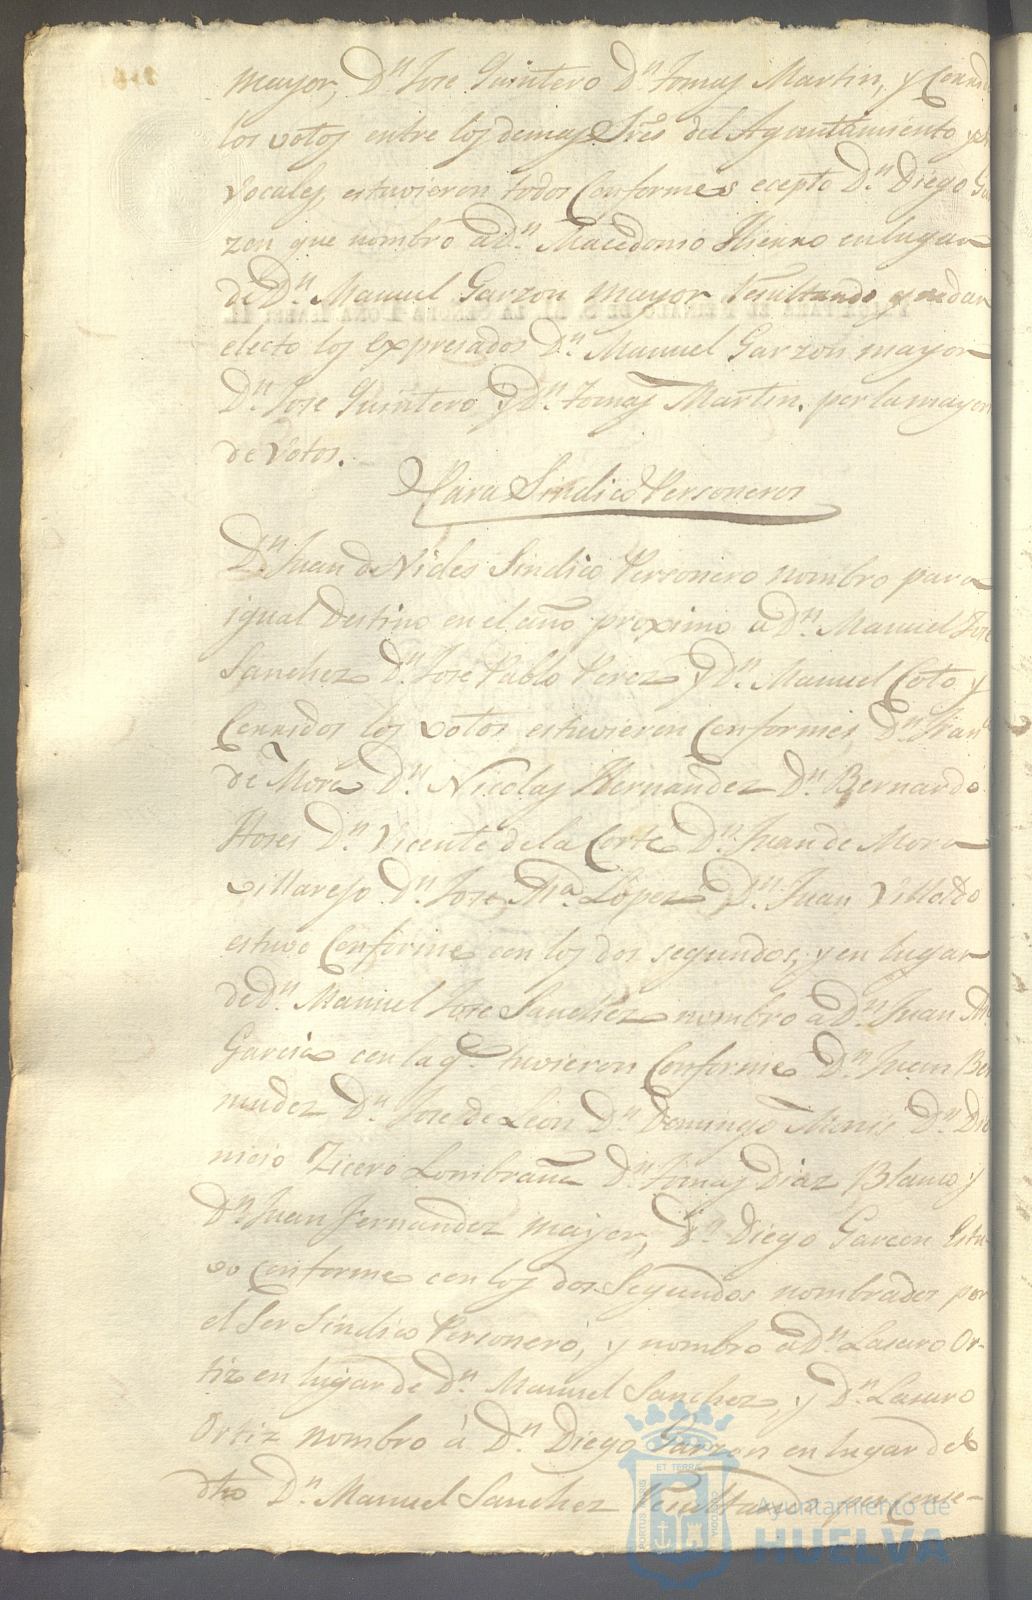 mayor, Dn. Jose Quintero Dn. Tomas Martin, y Corrido
los votos entre los demas Sres. del Ayuntamiento y
Vocales, estuvieron todos Conformes ecepto Dn. Diego Gar
zon que nombro a Dn. Macedonio Hierro en lugar
de Dn. Manuel Garzon mayor Resultando quedar
electo los Expresados Dn. Manuel Garzon mayor
Dn. Jose Quintero y Dn. Tomas Martin. por la mayor
de Votos.
Para Sindico Personeros
Dn. Juan de Nides Sindico Personero nombro para
igual Destino en el año proximo a Dn. Manuel Jose
Sanchez Dn. Jose Pablo Perez y Dn. Manuel Coto y
Corridos los votos estuvieron Conformes Dn. Fran
de Mora Dn. Nicolas Hernandez Dn. Bernardo
Flores Dn. Vicente de la Corte Dn. Juan de Mora
villarejo Dn. Jose Ma. Lopez, Dn. Juan Villoldo
estuvo Conforme con los dos segundos, y en lugar
de Dn. Manuel Jose Sanchez nombro a Dn. Juan
Garcia con la q. tuvieron Conforme Dn. Juan Ber
mudez Dn. Jose de Leon Dn. Domingo Dn. Dio
nicio Zicero Lombraña Dn. Tomas Diaz Blanco y
Dn. Juan Fernandez mayor, Dn. Diego Garzon Estu-
vo Conforme con los dos Segundos nombrados por
el Ser Sindico Personero, y nombro a Dn. Lasaro Or-
tiz en lugar de Dn. Manuel Sanchez, y Dn. Lasaro
Ortiz nombro à Dn. Diego Garzon en lugar del
dho Dn. Manuel Sanchez Resultando por conse-
PORTUS MARIS ET TERRAE CUSTODIA
Ayuntamiento de
HUELVA